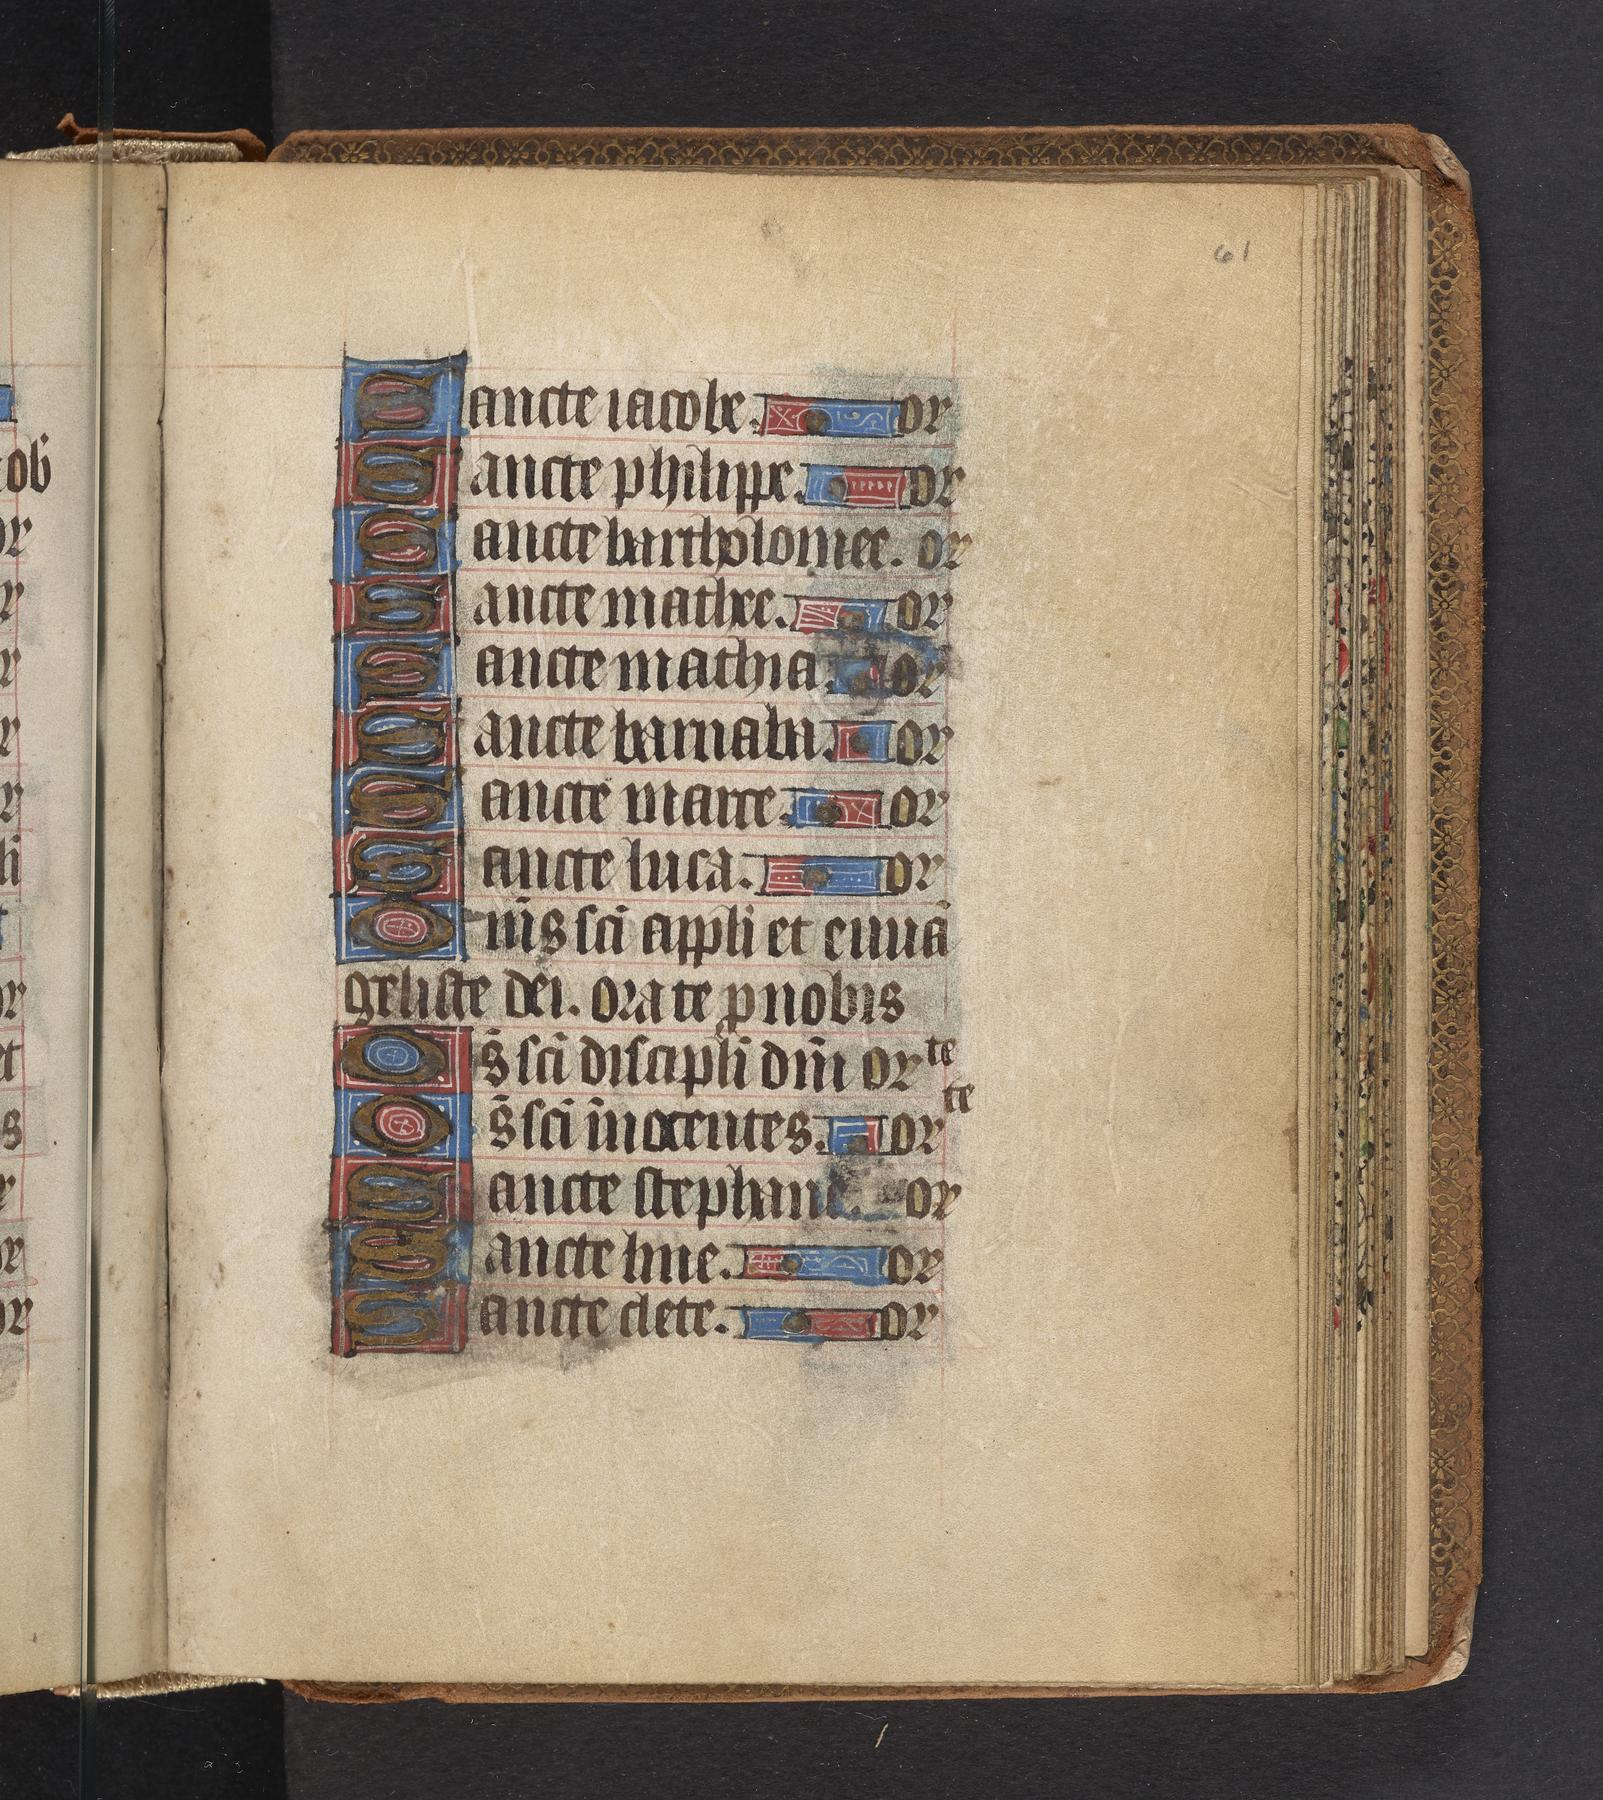 61
Sancte iacobe. or
Sancte philippe. or
Sancte bartholomee. or
Sancte mathee. or
Sancte mathia. or
Sancte barnaba. or
Sancte marce. or
Sancte luca. or
Om̄s sc̄i app̄li et euuā
geliste dei. orate p nobis
Os̄ sc̄i discip̄li dn̄i or te
Os̄ sc̄i īnocentes. or te
Sancte stephane. or
Sancte line. or
Sancte clete. or